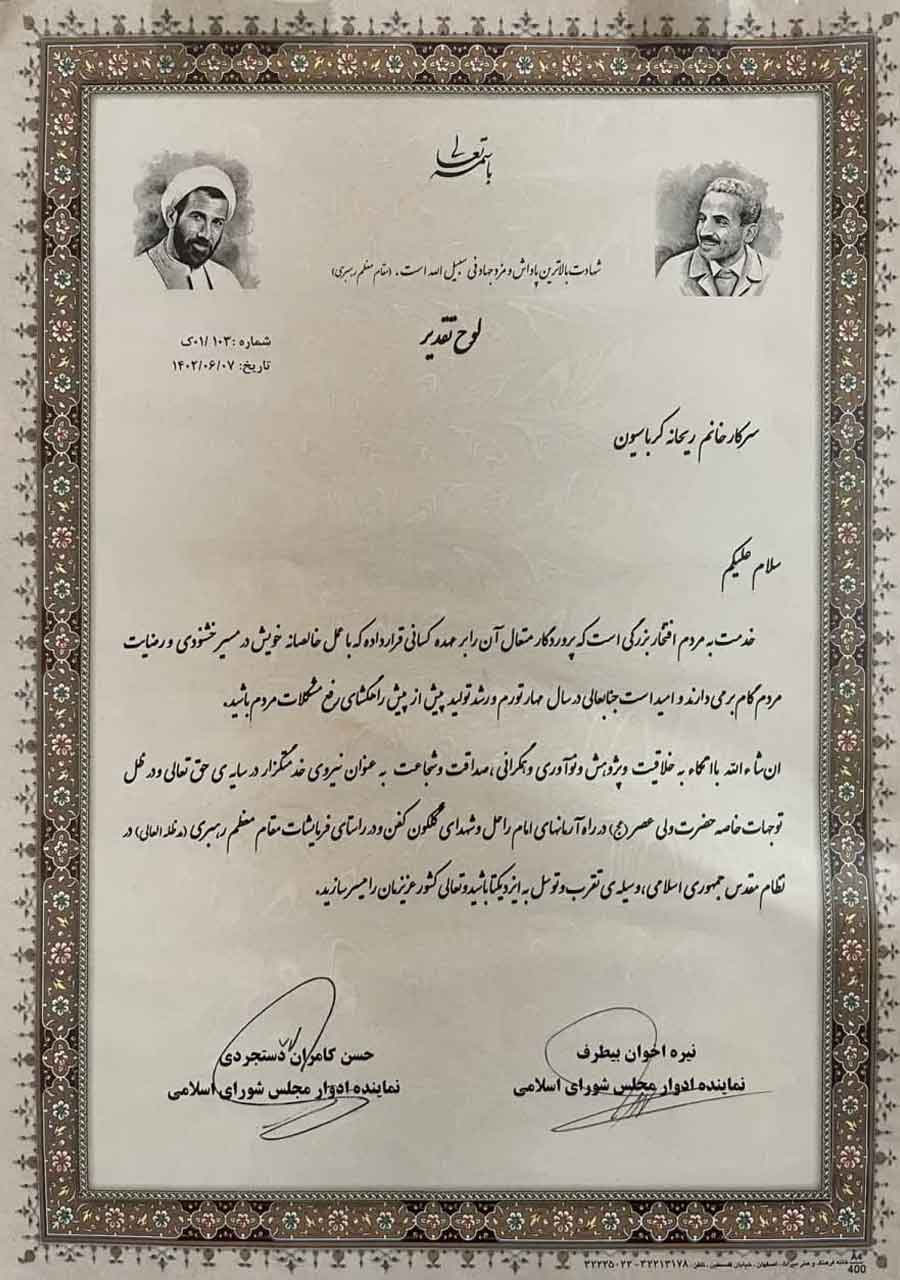 باسمه تعالی
شهادت بالاترین پاداش و مزد جهاد فی سبیل الله است. (مقام معظم رهبری)
لوح تقدیر
شماره : ۱۰۳ /۰۱ک
تاریخ: ۱۴۰۲/۰۶/۰۷
سرکار خانم ریحانه کرباسیون
سلام علیکم
خدمت به مردم افتخار بزرگی است که پروردگار متعال آن را بر عهده کسانی قرار داده که با عمل خالصانه خویش در مسیر خشنودی و رضایت
مردم گام بر می دارند و امید است جنابعالی در سال مهار تورم و رشد تولید پیش از پیش راهگشای رفع مشکلات مردم باشید.
ان شاء الله با اتکاء به خلاقیت و پژوهش و نوآوری و همگرائی ،صداقت و شجاعت به عنوان نیروی خدمتگزار در سایه ی حق تعالی و در ظل
توجهات خاصه حضرت ولی عصر (عج) در راه آرمانهای امام راحل و شهدای گلگون کفن و در راستای فرمایشات مقام معظم رهبری (مدظله العالی) در
نظام مقدس جمهوری اسلامی، وسیله ی تقرب و توسل به ایزد یکتا باشید و تعالی کشور عزیزمان را میسر سازید.
نیره اخوان بیطرف
نماینده ادوار مجلس شورای اسلامی
حسن کامران دستجردی
نماینده ادوار مجلس شورای اسلامی
خانه فرهنگ و هنر میراث، اصفهان ، خیابان فلسطین، تلفن: ۳۲۲۱۳۱۷۸-۳۲۲۲۵۰۲۲
A4
400